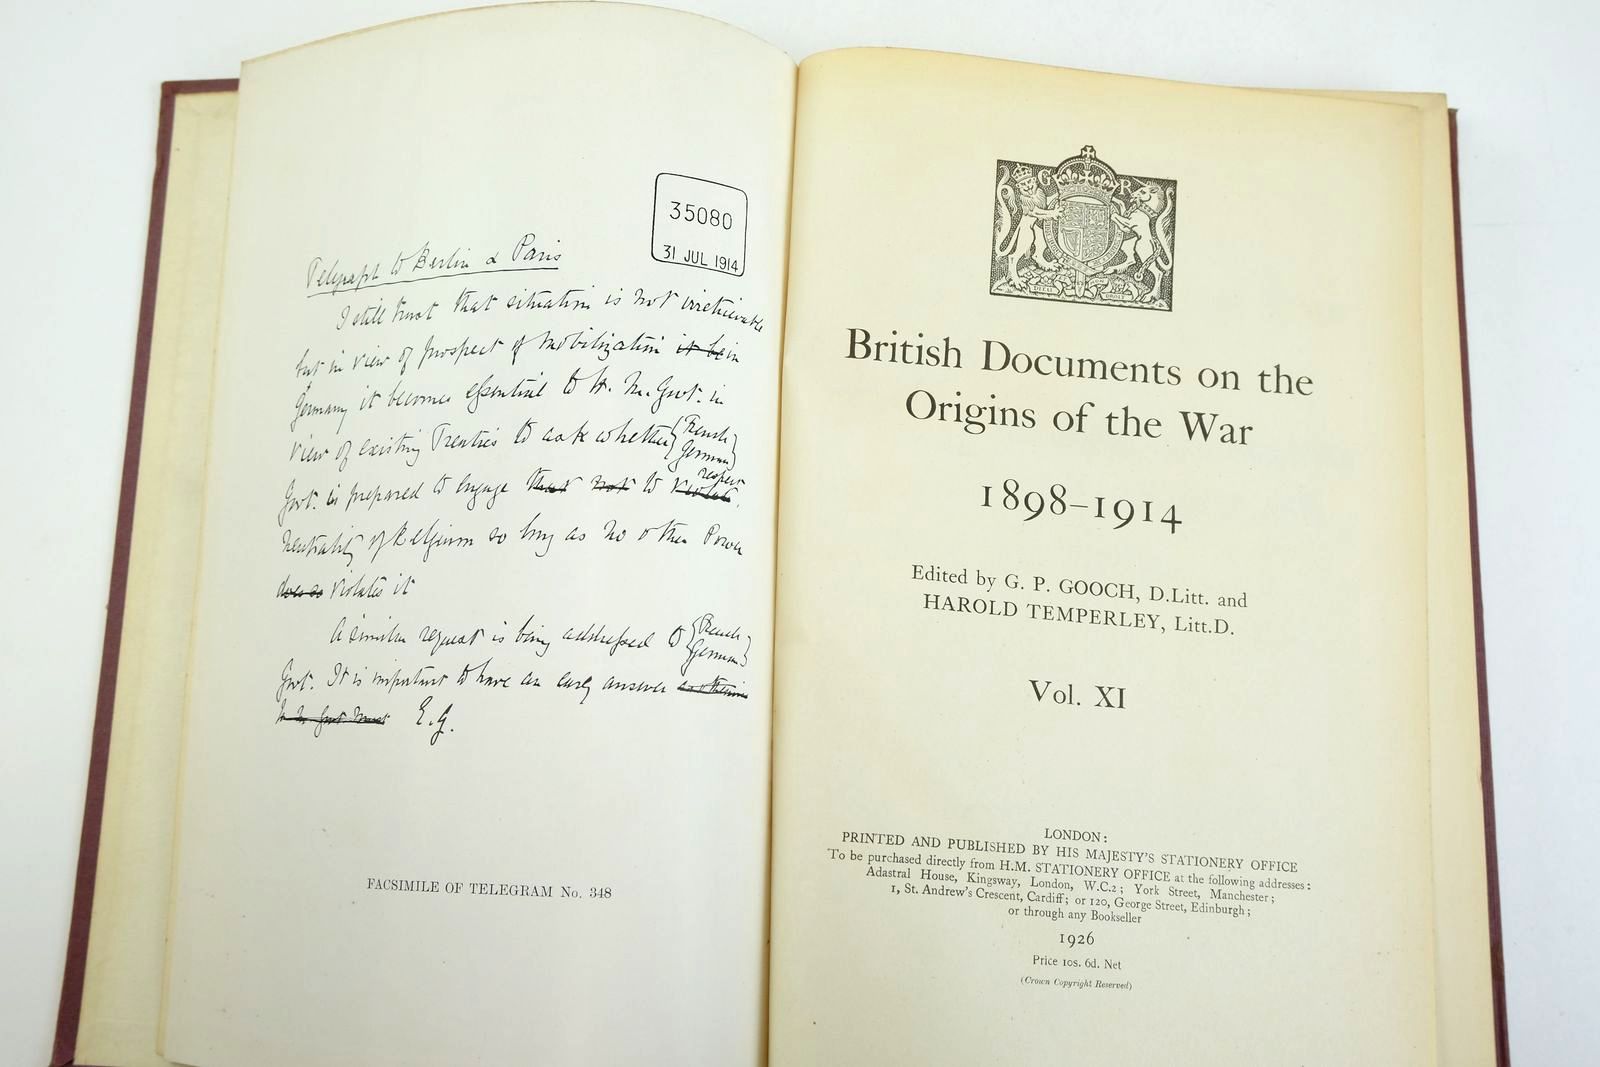 35080
31 JUL 1914
Telegraph to Berlin & Paris
I still trust that situation is not irretrievable
but in view of prospect of mobilization it be in
Germany it becomes essential to H. M. Govt. in
view of existing Treaties to ask whether {French
German}
Govt. is prepared to engage that not to violate respect
neutrality of Belgium so long as no other Power
does so violates it
A similar request is being addressed to {French
German}
Govt. It is important to have an early answer
H. M. Govt must E.G.
FACSIMILE OF TELEGRAM No. 348
G R
DIEU ET MON DROIT
British Documents on the
Origins of the War
1898–1914
Edited by G. P. GOOCH, D.Litt. and
HAROLD TEMPERLEY, Litt.D.
Vol. XI
LONDON:
PRINTED AND PUBLISHED BY HIS MAJESTY'S STATIONERY OFFICE
To be purchased directly from H.M. STATIONERY OFFICE at the following addresses:
Adastral House, Kingsway, London, W.C.2; York Street, Manchester;
1, St. Andrew's Crescent, Cardiff; or 120, George Street, Edinburgh;
or through any Bookseller
1926
Price 10s. 6d. Net
(Crown Copyright Reserved)